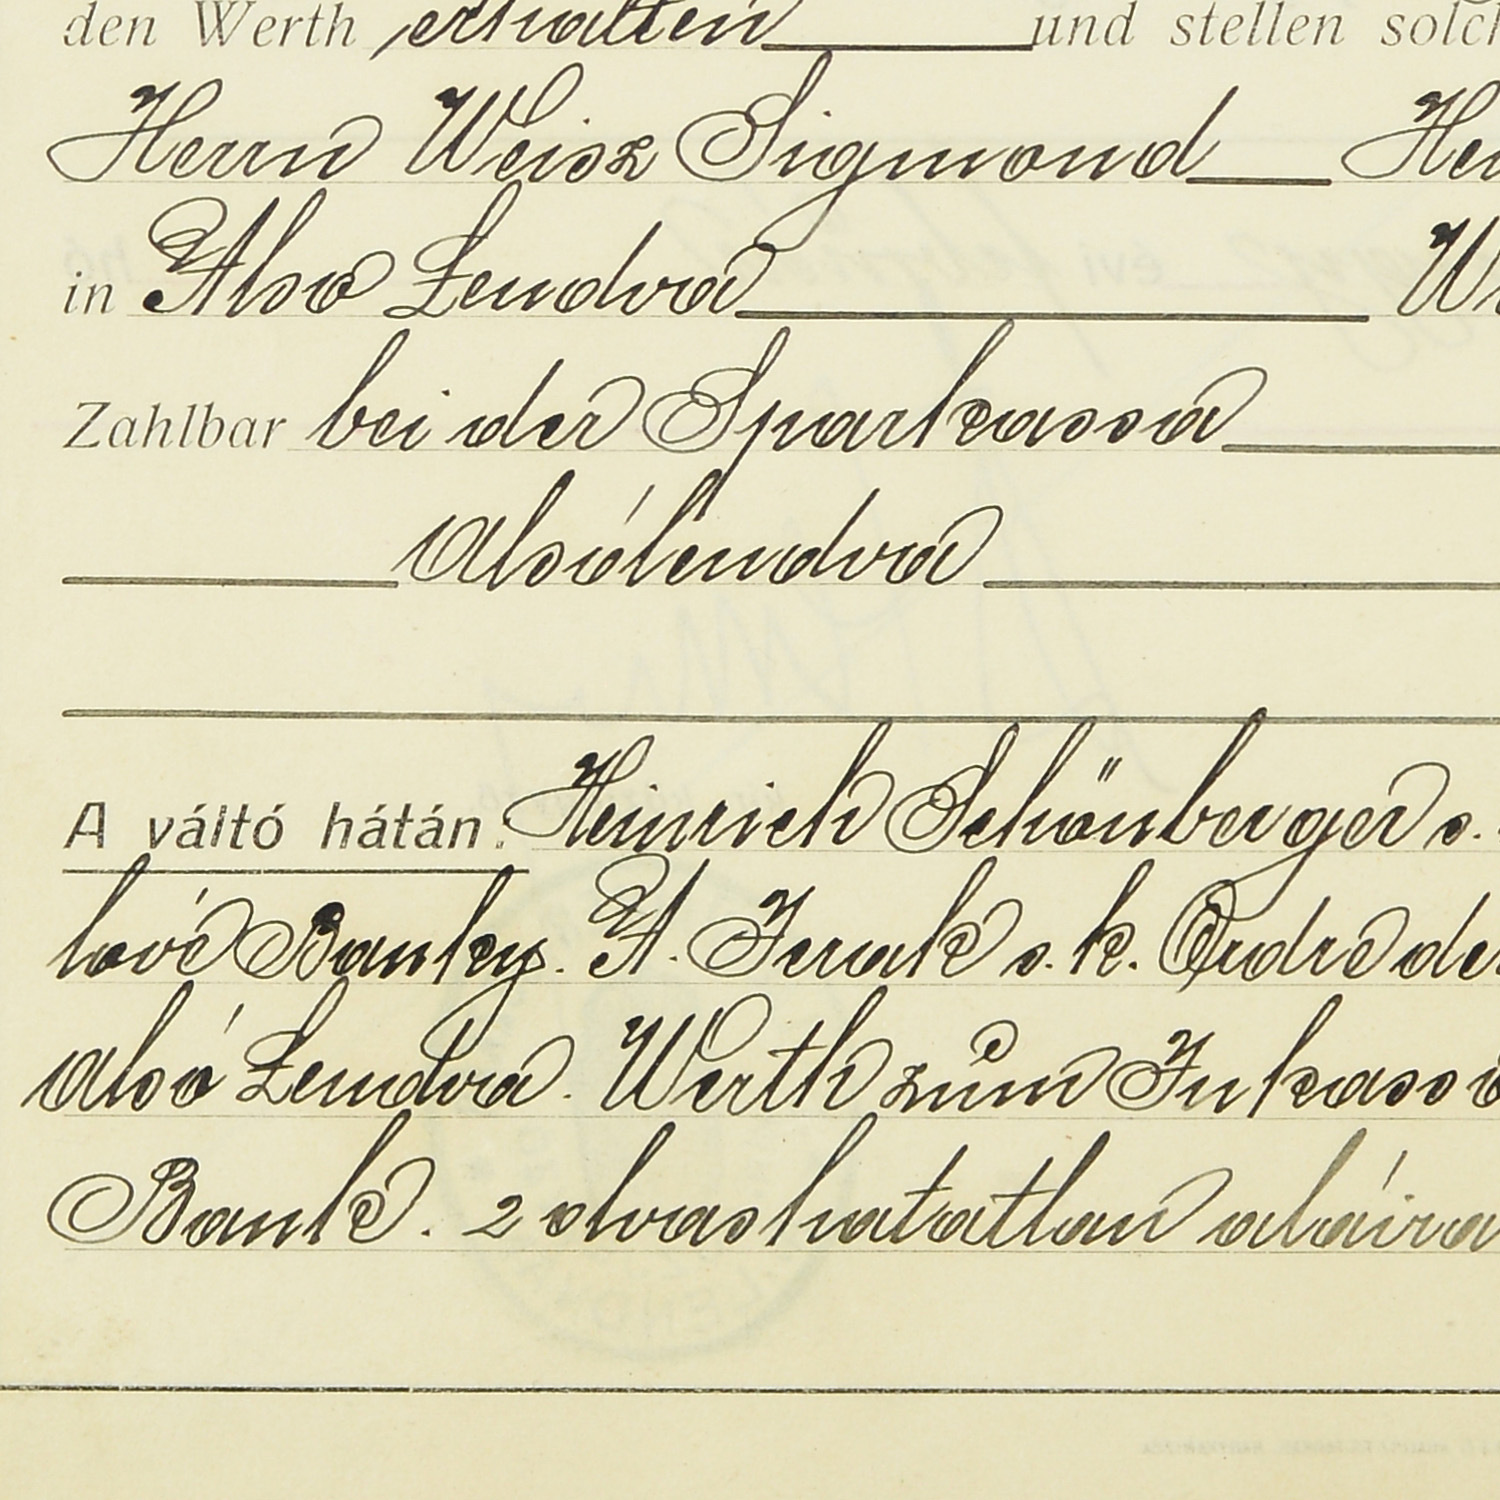 den Werth erhalten und stellen solch
Herrn Weisz Sigmond Hei
in Alsó Lendva W
Zahlbar bei der Sparkassa
Alsólendva
A váltó hátán. Heinrich Schönberger s.
lové Banky. A. Jerak s. k. Ordre der
Alsó Lendva. Werth zum Inkasso
Bank. 2 olvashatatlan aláíra